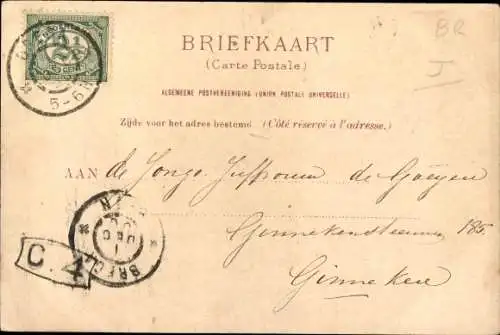 BRIEFKAART
(Carte Postale)
ALGEMEENE POSTVEREENIGING (UNION POSTALE UNIVERSELLE)
Zijde voor het adres bestemd. (Côté réservé à l'adresse.)
AAN de Jonge Juffrouw de
185
Ginneken
BREDA
C. 4
5-6
2½
BR
J